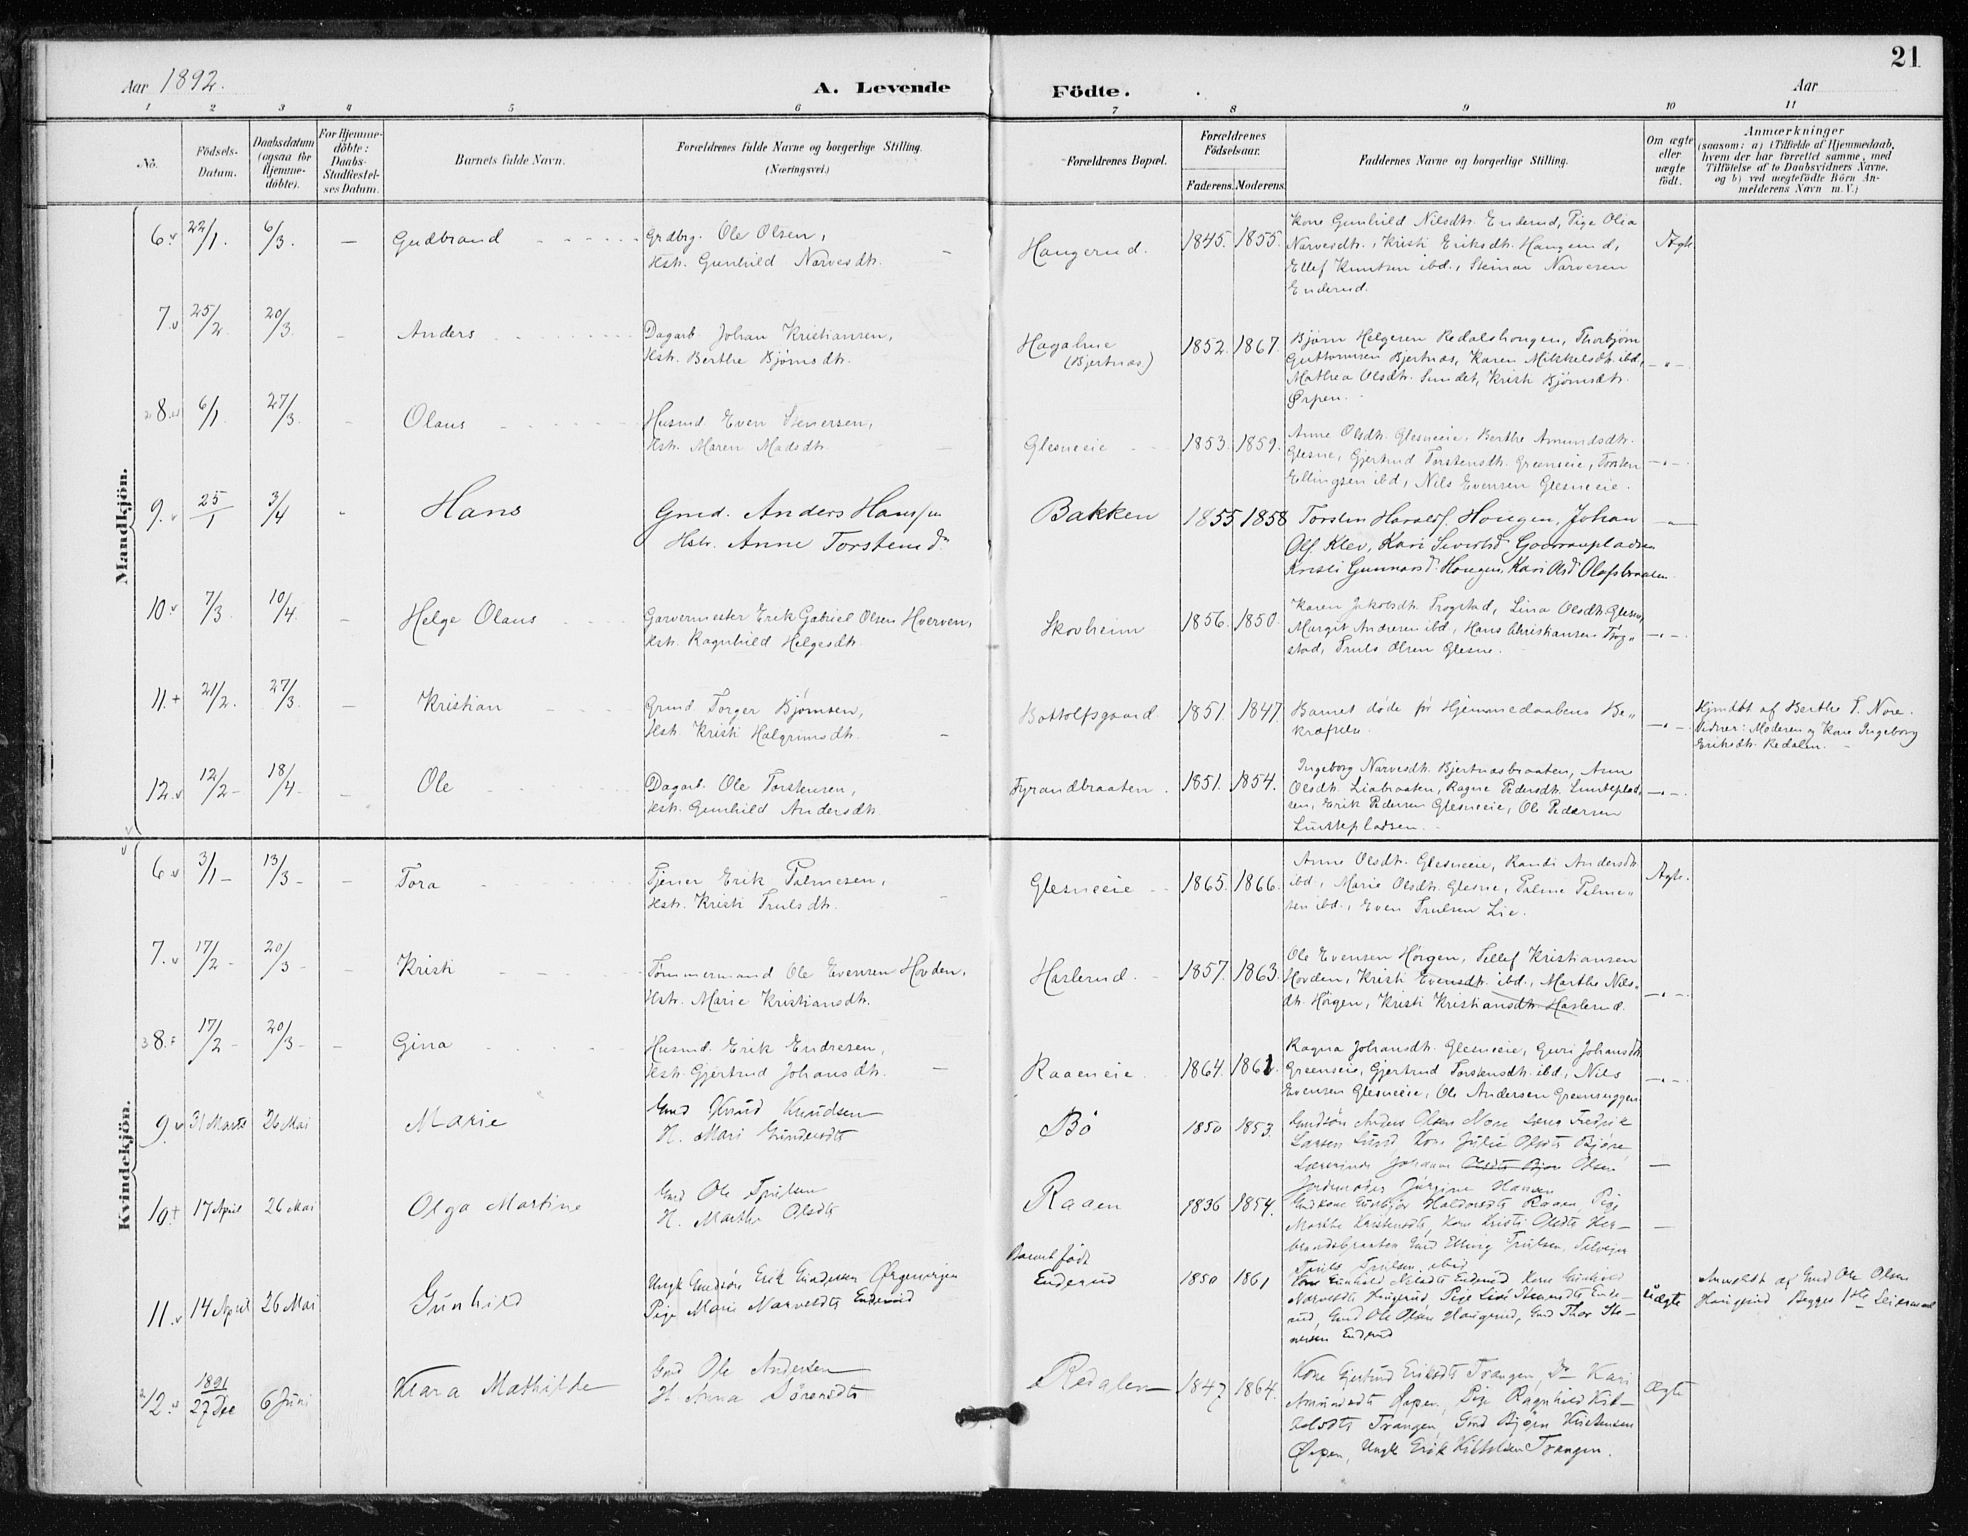 21
Aar 1892.
A. Levende Födte.
Aar
1 2 3 4 5 6 7 8 9 10 11
No.
Födsels-Datum.
Daabsdatum (ogsaa for Hjemme-döbte).
For Hjemme-döbte: Daabs-Stadfæstel-ses Datum.
Barnets fulde Navn.
Forældrenes fulde Navne og borgerlige Stilling. (Næringsvei.)
Forældrenes Bopæl.
Forældrenes Födselsaar.
Faderens. Moderens.
Faddernes Navne og borgerlige Stilling.
Om ægte eller uægte födt.
Anmærkninger
(saasom: a) i Tilfælde af Hjemmedaab,
hvem der har forrettet samme, med
Tilföielse af to Daabsvidners Navne,
og b) ved uægtefödte Börn An-
melderens Navn m. V.)
Mandkjön.
6. 22/1. 6/3. – Gudbrand
Grdbrg. Ole Olsen,
Hstr. Gunhild Narvesdtr.
Haugerud. 1845. 1855.
Kone Gunhild Nilsdtr. Enderud, Pige Olia
Narvesdtr., Kristi Eriksdtr. Haugerud,
Ellef Knutsen ibd., Steinar Narvesen
Enderud.
Ægte
7. 25/2. 20/3. – Anders
Dagarb. Johan Kristiansen,
Hstr. Berthe Bjørnsdtr.
Hagahue
(Bjertnæs) 1852. 1867.
Bjørn Helgesen Redalshougen, Thorbjørn
Guttormsen Bjertnæs, Karen Mikkelsdtr. ibd.,
Mathea Olsdtr. Sundet, Kristi Bjørnsdtr.
Ørpen.
– " –
8. 6/1. 27/3. – Olaus
Husmd. Even Stenersen,
Hstr. Maren Madsdtr.
Glesneeie 1853. 1859.
Anne Olsdtr. Glesneeie, Berthe Amundsdtr.
Glesne, Gjertrud Torstensdtr. Greenseie, Torsten
Ellingsen ibd., Nils Evensen Glesneeie.
– " –
9. 25/1 3/4 " Hans
Gmd. Anders Hanssen
Hstr. Anne Torstensd.
Bakken 1855 1858
Torsten Haralds. Hougen, Johan
Ols. Klev, Kari Sivertsd.
Kristi Gunnarsd. Hougen, Kari Olsd. Olafsbraaten.
– " –
10. 7/3. 10/4. – Helge Olaus
Garvermester Erik Gabriel Olsen Hverven,
Hstr. Ragnhild Helgesdtr.
Skovheim 1856. 1850.
Karen Jakobsdtr. Trøgstad, Lina Olsdtr. Glesne,
Margit Andresen ibd., Hans Christiansen Trøg-
stad, Truls Olsen Glesne.
– " –
11. + 21/2. 27/3. – Kristian
Grmd. Torger Bjørnsen,
Hstr. Kristi Halgrimsdtr.
Bottolfsgaard. 1851. 1847.
Barnet døde før Hjemmedaabens Be-
kræftelse.
– " –
Hjmdbt. af Berthe T. Nore.
Vidner: Moderen og Kone Ingeborg
Eriksdtr. Redalen.
12. 12/2 – 18/4. – Ole
Dagarb. Ole Torstensen,
Hstr. Gunhild Andersdtr.
Tyrandbraaten. 1851. 1854.
Ingeborg Narvesdtr. Bjertnæsbraaten, Anne
Olsdtr. Liabraaten, Ragne Pedersdtr. Lunteplad-
sen, Erik Pedersen Glesneeie, Ole Pedersen
Luntepladsen.
– " –
Kvindekjön.
6. 3/1 – 13/3 – – Tora
Tjener Erik Palmesen,
Hstr. Kristi Trulsdtr.
Glesneeie 1865. 1866.
Anne Olsdtr. Glesneeie, Randi Andersdtr.
ibd., Marie Olsdtr. Glesne, Palme Palme-
sen ibd., Even Trulsen Lie.
Ægte.
7. 17/2 – 20/3 – – Kristi
Tømmermand Ole Evensen Hovden,
Hstr. Marie Kristiansdtr.
Haslerud. 1857. 1863.
Ole Evensen Hørgen, Tellef Kristiansen
Hovden, Kristi Evensdtr. ibd., Marthe Nils-
dtr. Hørgen, Kristi Kristiansdtr. Haslerud.
– " –
8. 17/2 – 20/3 – – Gina
Husmd. Erik Endresen,
Hstr. Gjertrud Johansdtr.
Raaeneie 1864. 1861.
Ragna Johansdtr. Glesneeie, Guri Johansdtr.
Greenseie, Gjertrud Torstensdtr. ibd., Nils
Evensen Glesneeie, Ole Andersen Greensruggen
– " –
9. 31 Marts 26 Mai Marie
Gmd Knud Knudsen
H. Mari Gundersdtr
Bö 1850 1853.
Gmdsön Anders Olsen Nore Fredrik
Larsen Lund Kone Julie Olsdtr Björe,
Lærerinde Johanne Olsdtr Bjøre Olsen
Jordemoder Jörgine Hansen
–
10 + 17 April 26 Mai Olga Martine
Gmd Ole Trulsen
H. Marthe Olsdtr
Raaen 1836 1854.
Gmdkone Haldorsdtr Raaen, Pige
Marthe Kristensdtr, Kone Kristi Olsdtr Her-
brandsbraaten Gmd Elling Trulsen,
Truls Trulsen ibd
–
11. 14 April 26 Mai Gunhild
Ungk Gmdsön Erik Gundersen
Pige Marie Narvesdtr Enderud
Barnet född
Enderud 1850 1861
Kone Gunhild Nilsdtr Enderud, Kone Gunhild
Narvesdtr Haugrud Pige Live Ende-
rud, Gmd Ole Olsen Haugrud, Gmd Thor Ste-
nersen Enderud
Uægte
Anmeldt af Gmd Ole Olsen
Haugerud Begges 1ste Leiermaal
12. 1891 27 Dec 6 Juni Klara Mathilde
Gmd Ole Andersen
H. Anna Sörensdtr
Redalen 1847 1864.
Kone Gjertrud Eriksdtr Trangen, Do Kari
Amundsdtr Ørpen, Pige Ragnhild Kit-
tilsdtr Trangen, Gmd Björn Kristensen
Ørpen, Ungk Erik Kittilsen Trangen.
Ægte